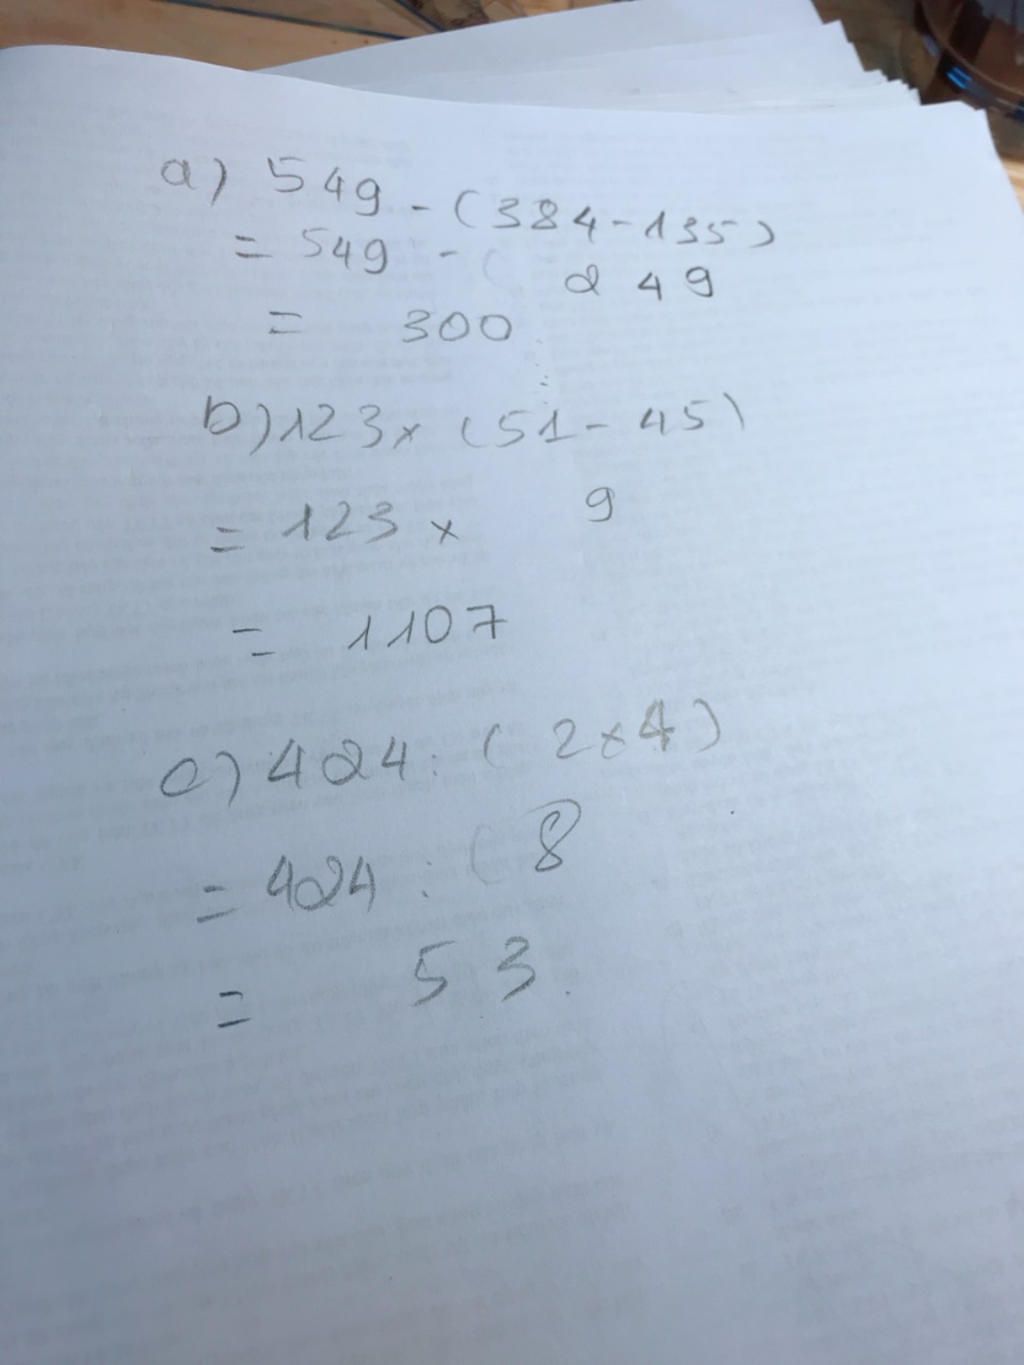 a) 549 - (384-135)
= 549 - ( 249
= 300
b) 123 x (51 - 45)
= 123 x 9
= 1107
c) 424 : ( 2 x 4 )
= 424 : ( 8
= 53.